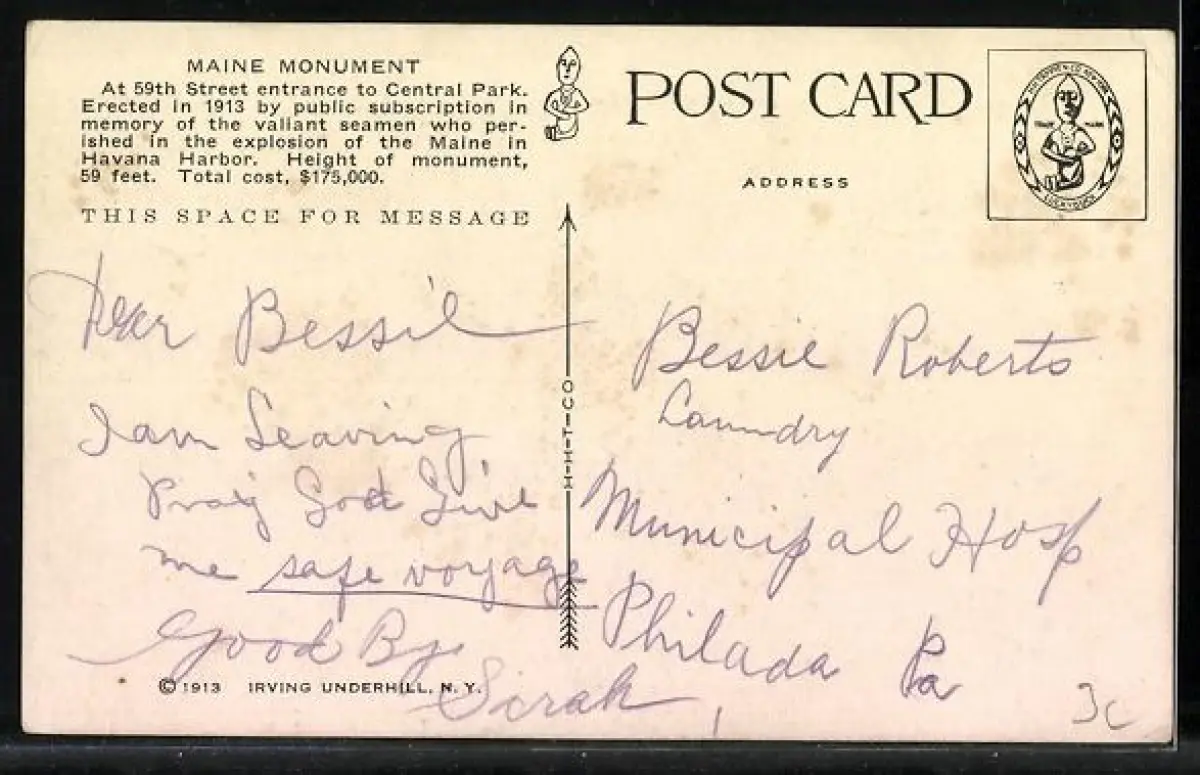 MAINE MONUMENT
At 59th Street entrance to Central Park.
Erected in 1913 by public subscription in
memory of the valiant seamen who per-
ished in the explosion of the Maine in
Havana Harbor. Height of monument,
59 feet. Total cost, $175,000.
THIS SPACE FOR MESSAGE
Dear Bessie
I am Leaving
Pray God Give
me safe voyage
Good By
Sarah
© 1913 IRVING UNDERHILL, N. Y.
H-H-T-CO
POST CARD
ADDRESS
TRADE MARK
Bessie Roberts
Laundry
Municipal Hosp
Philada Pa
3c